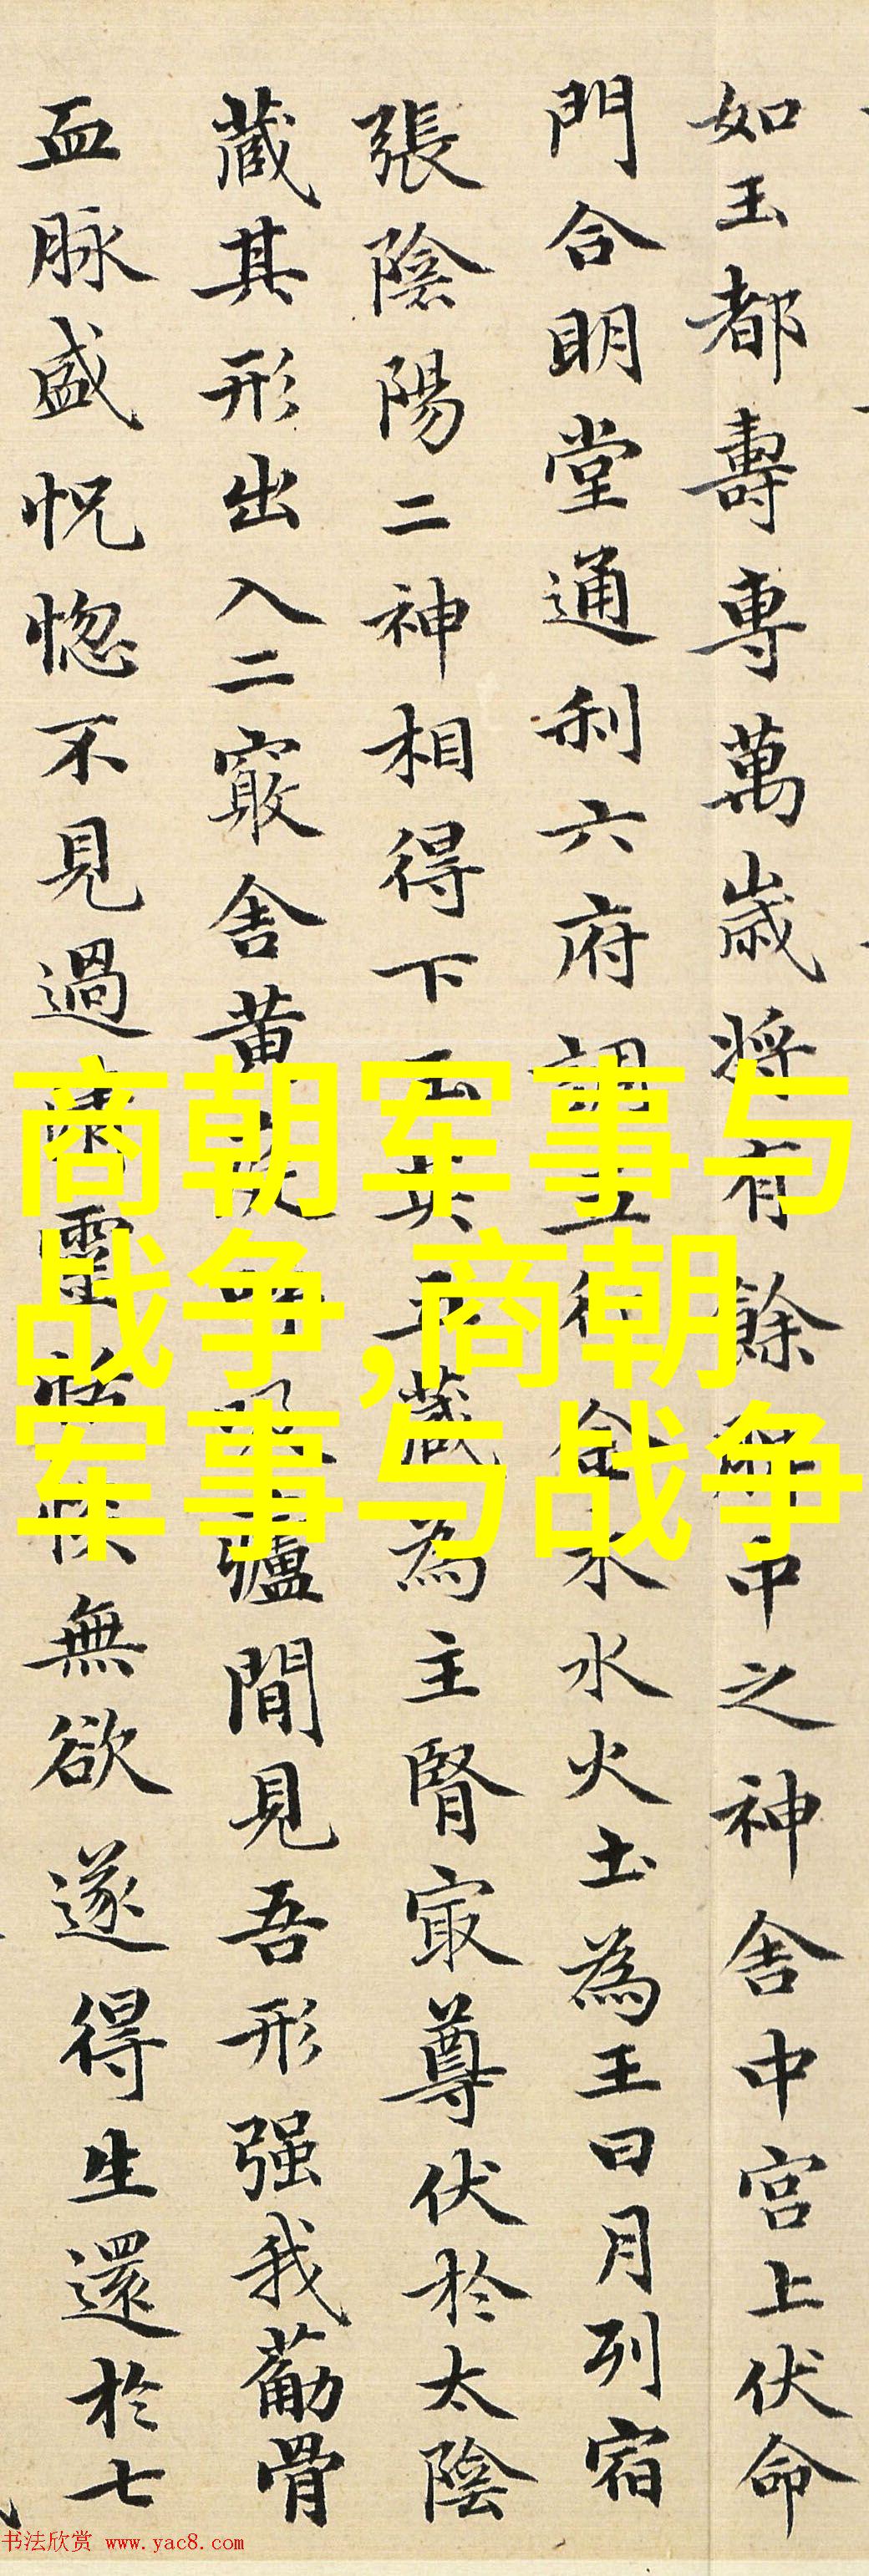 如玉都壽專萬歲將有餘脾中之神舍中宮上伏命
門合明堂通利六府調五行金木水火土為王日月列宿
張陰陽二神相得下玉英五藏為主腎最尊伏於太陰
藏其形出入二竅舍黃庭呼吸廬間見吾形强我葡骨
血脉盛怳惚不見過清靈恬惔無欲遂得生還於七
商朝军事与
战争,商朝
军事与战争
书法欣赏 www.yac8.com